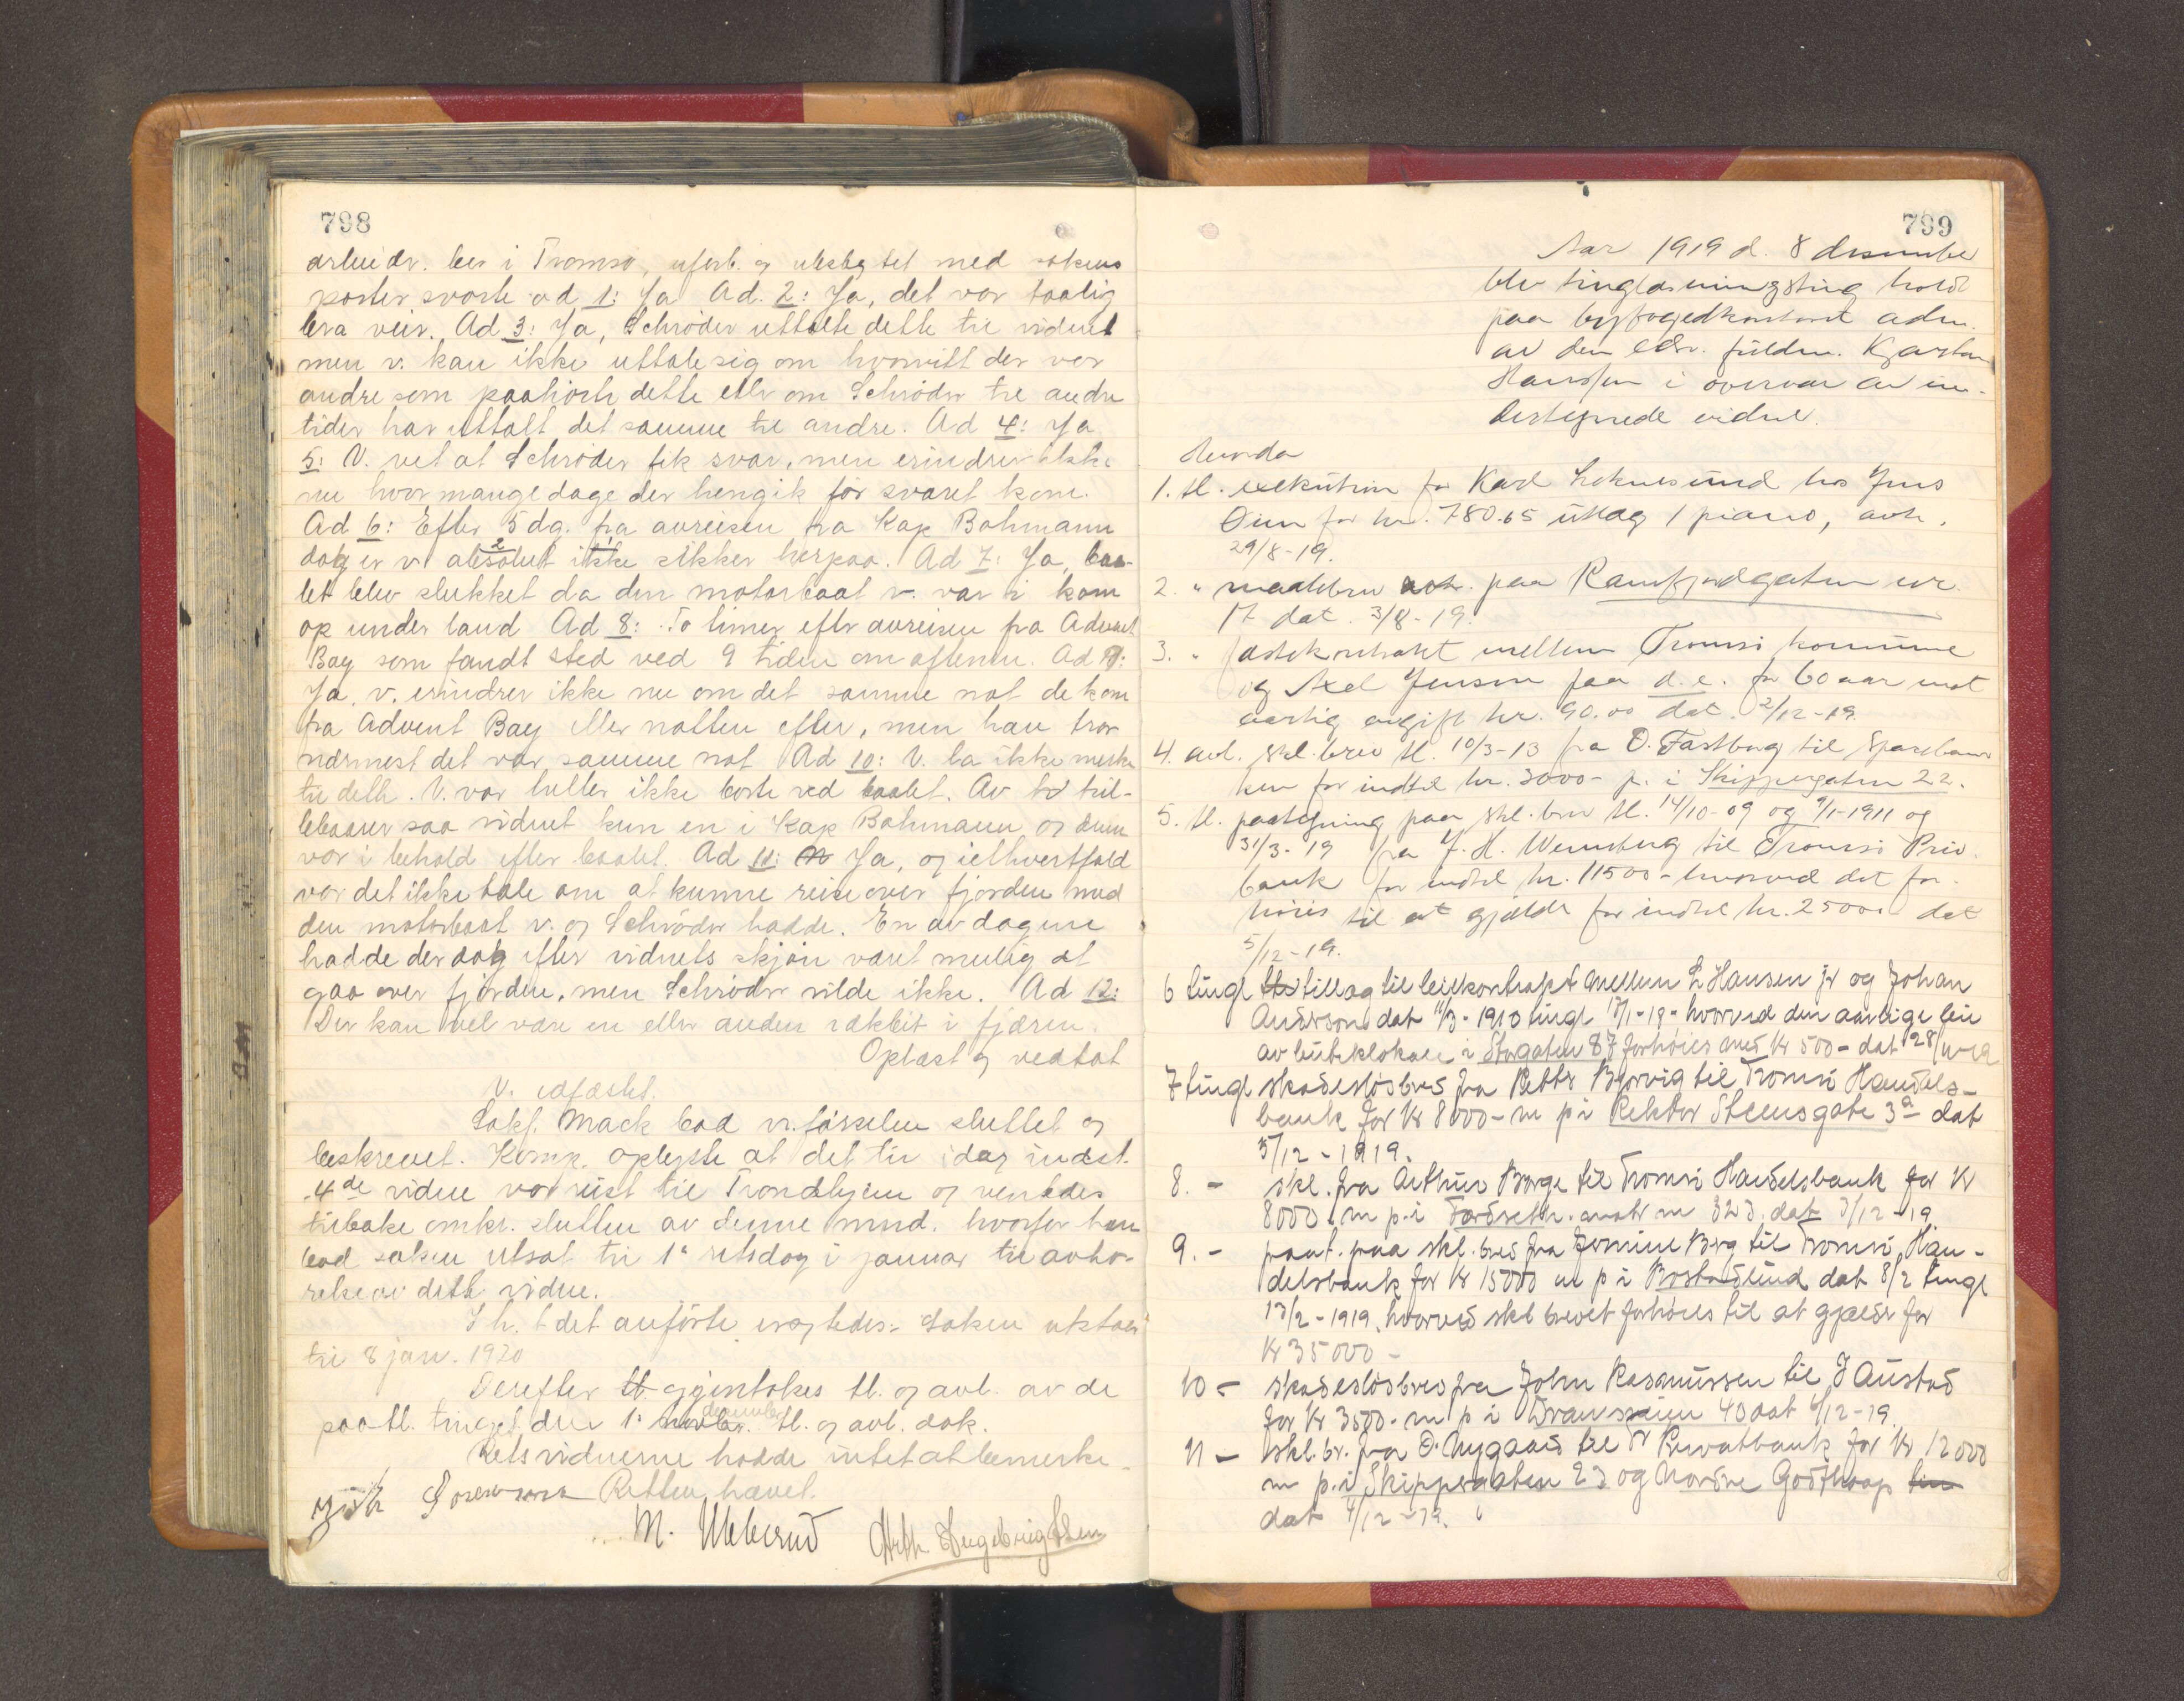 798
arbeider. bor i Tromsø, uforb. og ubeslegtet med sakens
parter svarte ad 1: Ja Ad. 2: Ja, det var taalig
bra veir. Ad 3: Ja, Schrøder uttalte dette til vidnet
men v. kan ikke uttale sig om hvorvitt der var
andre som paahørte dette eller om Schrøder til andre
tider har uttalt det samme til andre. Ad 4: Ja
5: V. vet at Schrøder fik svar, men erindrer ikke
nu hvor mange dage der hengik før svaret kom.
Ad 6: Efter 5 dg. fra avreisen fra Kap Bohmann
dog er v. absolut ikke sikker herpaa. Ad 7: Ja, baa-
let blev slukket da den motorbaat v. var i kom
op under land Ad 8: To timer efter avreisen fra Advent
Bay som fandt sted ved 9 tiden om aftenen. Ad 9:
Ja, v. erindrer ikke nu om det samme nat de kom
fra Advent Bay eller natten efter, men han tror
nærmest det var samme nat Ad 10: V. la ikke merke
til dette. V. var heller ikke borte ved baalet. Av to træl-
lebaarer saa vidnet kun en i Kap Bohmann og denne
var i behold efter baalet. Ad 11: Ja, og ialhvertfald
var det ikke tale om at kunne reise over fjorden med
den motorbaat v. og Schrøder hadde. En av dagene
hadde der dog efter vidnets skjøn været mulig at
gaa over fjorden, men Schrøder vilde ikke. Ad 12:
Der kan vel være en eller anden rækbit i fjæren.
Oplæst og vedtat
V. edfæstet.
Sakf. Mack bad vn.førselen sluttet og
beskrevet. Komp. oplyste at det til idag indst.
4de vidne var reist til Trondhjem og ventedes
tilbake omkr. slutten av denne mnd. hvorfor han
bad saken utsat til 1ª retsdag i januar til avhø-
relse av dette vidne.
I h. t det anførte eragtedes: Saken utstaar
til 8 jan. 1920
Derefter gjentokes tl. og avl. av de
paa tl. tinget den 1. december tl. og avl. dok.
Retsvidnerne hadde intet at bemerke.
Retten hævet.
M. Ulebrud Arth Ingebrigtsen
799
Aar 1919 d. 8 desember
blev tinglæsningsting hold
paa byfogedkontoret adm.
av den edsv. fuldm. Kjartan
Hanssen i overvær av un-
dertegnede vidner.
Herunda
1. tl. exekution for Karl Loknesund hos Jens
Oien for kr. 780.65 utlag 1 piano, avh.
29/8-19.
2. " maalebrev paa Ramfjordgaten nr
17 dat. 3/8-19.
3. " fæstekontrakt mellem Tromsø kommune
og Axel Jensen paa d. e. for 60 aar mot
aarlig avgift kr. 90.00 dat. 2/12-19.
4. avl. skl. brev tl. 10/3-13 fra O. Fastborg til Spareban-
ken for indtil kr. 3000- p. i Skippergaten 22.
5. tl. paategning paa skl. brev tl. 14/10-09 og 9/1-1911 og
31/3-19 fra J. H. Wennberg til Tromsø Priv.
bank for indtil kr. 11500- hvorved det for-
høies til at gjælde for indtil kr. 25000 dat
5/12-19.
6 tingl tillæg til leiekontrakt mellem L Hansen jr og Johan
Anderson dat 11/3-1910 tingl 13/1-19- hvorved den aarlige leie
av butiklokale i Storgaten 87 forhøies med kr 500- dat 28/11-19
7 tingl skadesløsbrev fra Petter Bjørvig til Tromsø Handels-
bank for kr 8000- m p i Rektor Steensgate 3a dat
5/12-1919.
8. - skl. fra Arthur Borge til Tromsø Handelsbank for kr
8000. m p. i matr nr 323. dat 3/12-19.
9. - paat. paa skl. brev fra Jermine Berg til Tromsø Han-
delsbank for kr 15000 m p i Bostadlind dat 8/2 tingl
13/2-1919, hvorved skl brevet forhøies til at gjælde for
kr 35000-
10 - skadesløsbrev fra John Rasmussen til J Austad
for kr 3500- m p i Dramsveien 40 dat 6/12-19.
11 - skl. br. fra O. Nygaard til Tr Privatbank for kr 12000
m p. i Skippergaten 23 og Nordre Godthaap
dat 4/12-19.